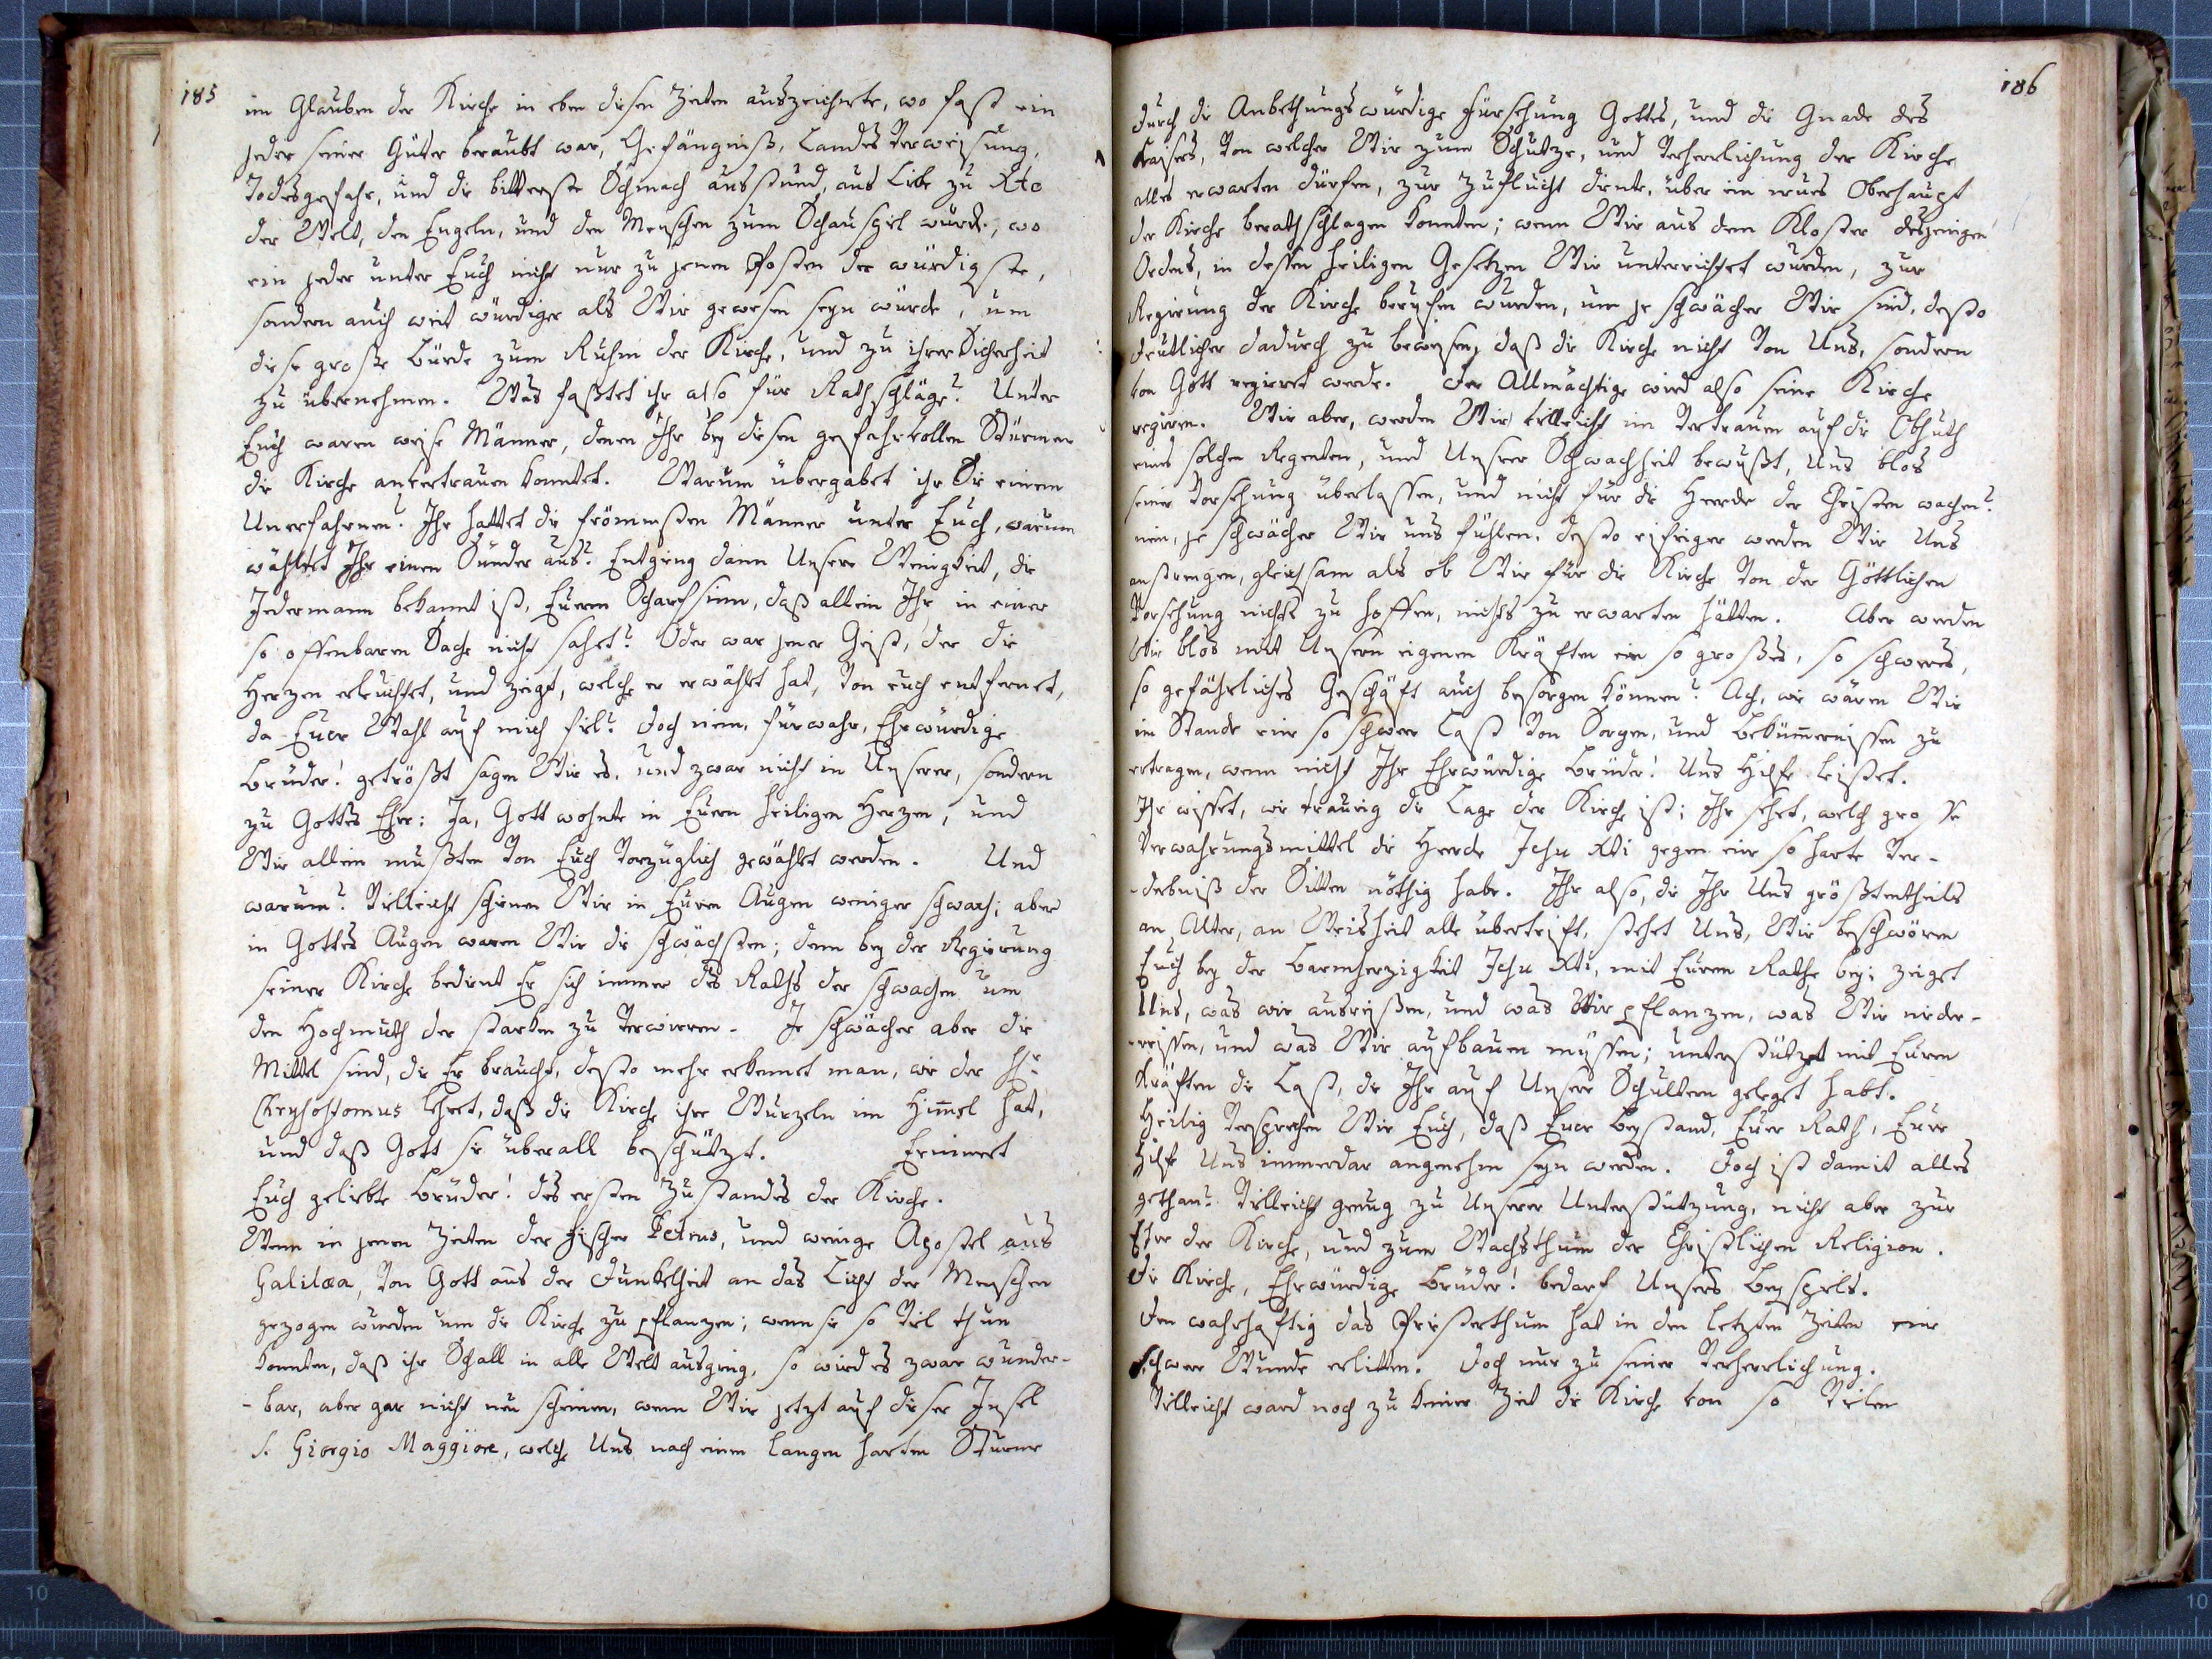 185
im Glauben der Kirche in eben diesen Zeiten auszeichnete, wo fast ein
jeder seiner Güter beraubt war, Gefängniß, Landes Verweisung,
Todesgefahr, und die bitterste Schmach ausstund, aus Liebe zu Xto
der Welt, den Engeln, und den Menschen zum Schauspiel wurde, wo
ein jeder unter Euch nicht nur zu jenen Posten der würdigste,
sondern auch weit würdiger als Wir gewesen seyn würde, um
diese große Bürde zum Ruhm der Kirche, und zu ihrer Sicherheit
zu übernehmen. Was faßtet ihr also für Rathschläge? Unter
Euch waren weise Männer, denen Ihr bey diesen gefahrvollen Stürmen
die Kirche anvertrauen konntet. Warum übergabet ihr Sie einem
Unerfahrnen? Ihr hattet die frömmsten Männer unter Euch, warum
wähltet Ihr einen Sünder aus? Entging dann Unsere Wenigkeit, die
Jedermann bekannt ist, Eurem Scharfsinn, daß allein Ihr in einer
so offenbaren Sache nicht sahet? Oder war jener Geist, der die
Herzen erleuchtet, und zeigt, welche er erwählt hat, von euch entfernet,
da Eure Wahl auf mich fiel? Doch nein, fürwahr, Ehrwürdige
Brüder! getröst sagen Wir es, und zwar nicht in Unserer, sondern
zu Gottes Ehre: Ja, Gott wohnte in Euern heiligen Herzen, und
Wir allein mußten von Euch vorzüglich gewählt werden. Und
warum? Vielleicht schienen Wir in Euren Augen weniger schwach; aber
in Gottes Augen waren Wir die schwächsten; denn bey der Regierung
seiner Kirche bedient Er sich immer des Raths der schwachen um
den Hochmuth der starken zu verwirren. Je schwächer aber die
Mittel sind, die Er braucht, desto mehr erkennet man, wie der hr
Chrysostomus lehret, daß die Kirche ihre Wurzeln im Him̄el hat,
und daß Gott sie überall beschützt. Erinnert
Euch geliebte Brüder! des ersten Zustandes der Kirche.
Wenn in jenen Zeiten der Fischer Petrus, und wenige Apostel aus
Galilæa, von Gott aus der Dunkelheit an das Licht der Menschen
gezogen wurden um die Kirche zu pflanzen; wenn sie so viel thun
konnten, daß ihr Schall in alle Welt ausging, so wird es zwar wunder-
-bar, aber gar nicht neu scheinen, wenn Wir jetzt auf dieser Insel
S. Giorgio Maggiore, welche Uns nach einem langen harten Sturme
186
durch die Anbethungswürdige Fürsehung Gottes, und die Gnade des
Kaisers, von welcher Wir zum Schutze, und Verherrlichung der Kirche
alles erwarten dürfen, zur Zuflucht diente, über ein neues Oberhaupt
der Kirche berathschlagen konnten; wenn Wir aus dem Kloster desjenigen
Ordens, in dessen heiligen Gesetzen Wir unterrichtet wurden, zur
Regierung der Kirche berufen wurden, um je schwächer Wir sind, desto
deutlicher dadurch zu beweisen, daß die Kirche nicht von Uns, sondern
von Gott regieret werde. Der Allmächtige wird also seine Kirche
regieren. Wir aber, werden Wir vielleicht im Vertrauen auf die Obhuth
eines solchen Regenten, und Unserer Schwachheit bewußt, Uns blos
seiner Vorsehung überlassen, und nicht für die Heerde der Christen wachen?
nein, je schwächer Wir uns fühlen, desto eifriger werden Wir Uns
anstrengen, gleichsam als ob Wir für die Kirche von der Göttlichen
Vorsehung nichts zu hoffen, nichts zu erwarten hätten. Aber werden
Wir blos mit Unsern eigenen Kräften ein so großes, so schweres,
so gefährliches Geschäft auch besorgen können? Ach, wie wären Wir
im Stande eine so schwere Last von Sorgen, und Beküm̄ernissen zu
ertragen, wenn nicht Ihr Ehrwürdige Brüder! Uns Hilfe leistet.
Ihr wisset, wie traurig die Lage der Kirche ist; Ihr sehet, welch große
Verwahrungsmittel die Heerde Jesu Xti gegen eine so harte Ver-
-derbniß der Sitten nöthig habe. Ihr also, die Ihr Uns größtentheils
an Alter, an Weisheit alle übertrift, stehet Uns, Wir beschwören
Euch bey der Barmherzigkeit Jesu Xti, mit Eurem Rathe bey; zeiget
Uns, was wir ausreißen, und was Wir pflanzen, was Wir nieder-
-reissen, und was Wir aufbauen müssen; unterstützet mit Euren
Kräften die Last, die Ihr auf Unsere Schultern geleget habt.
Heilig versprechen Wir Euch, daß Euer Beystand, Euer Rath, Eure
Hilfe Uns immerdar angenehm seyn werden. Doch ist damit alles
gethan? Vielleicht genug zu Unserer Unterstützung, nicht aber zur
Ehre der Kirche, und zum Wachsthum der Christlichen Religion.
Die Kirche, Ehrwürdige Brüder! bedarf Unsers Beyspiels.
Den wahrhaftig das Priesterthum hat in den letzten Zeiten eine
schwere Wunde erlitten. Doch nur zu seiner Verherrlichung.
Vielleicht ward noch zu keiner Zeit die Kirche von so Vielen